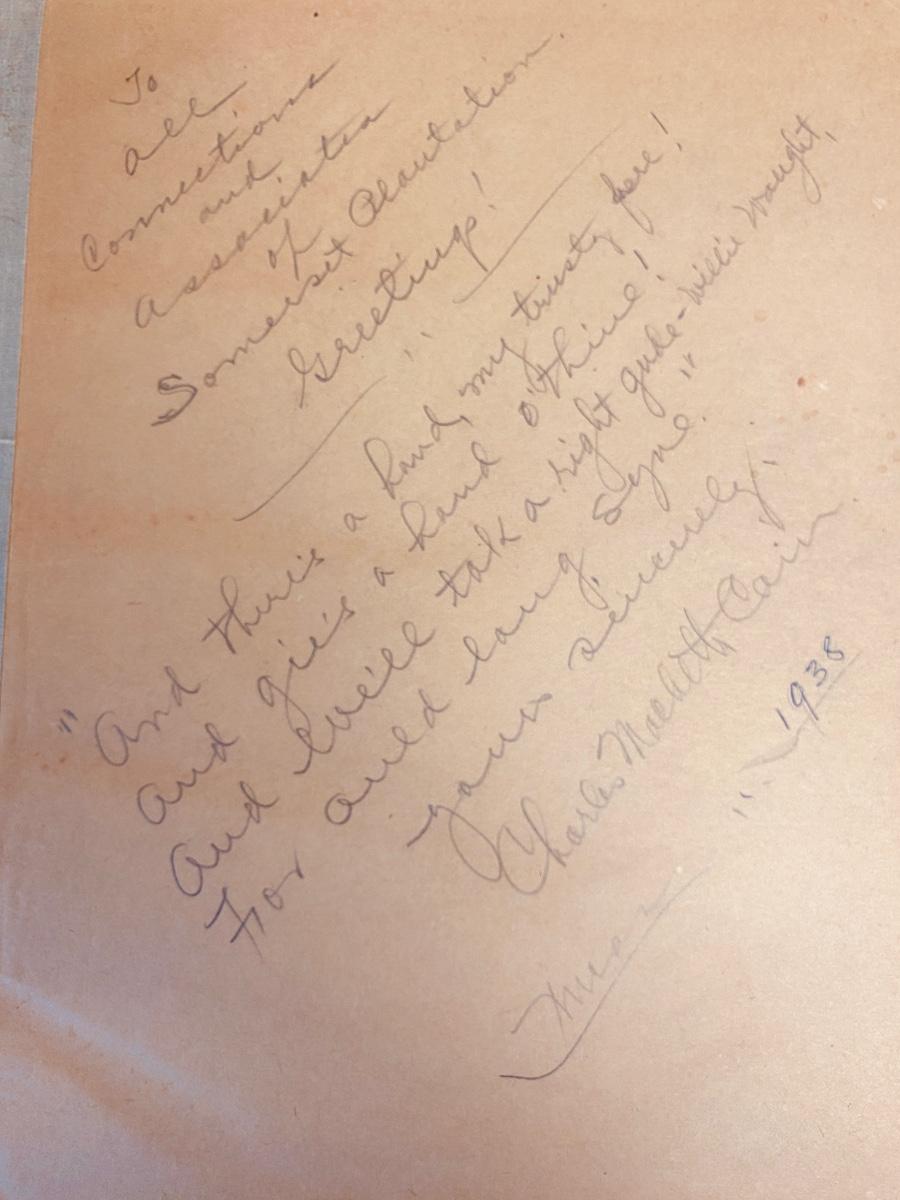 To
all
Connections
and
Associates
of
Somerset Plantation.
Greetings!
"And there's a hand, my trusty fere!
And gie's a hand o' thine!
And we'll tak a right gude-willie waught,
For auld lang syne."
yours sincerely,
Charles Macbeth Cain
1938
Xmas